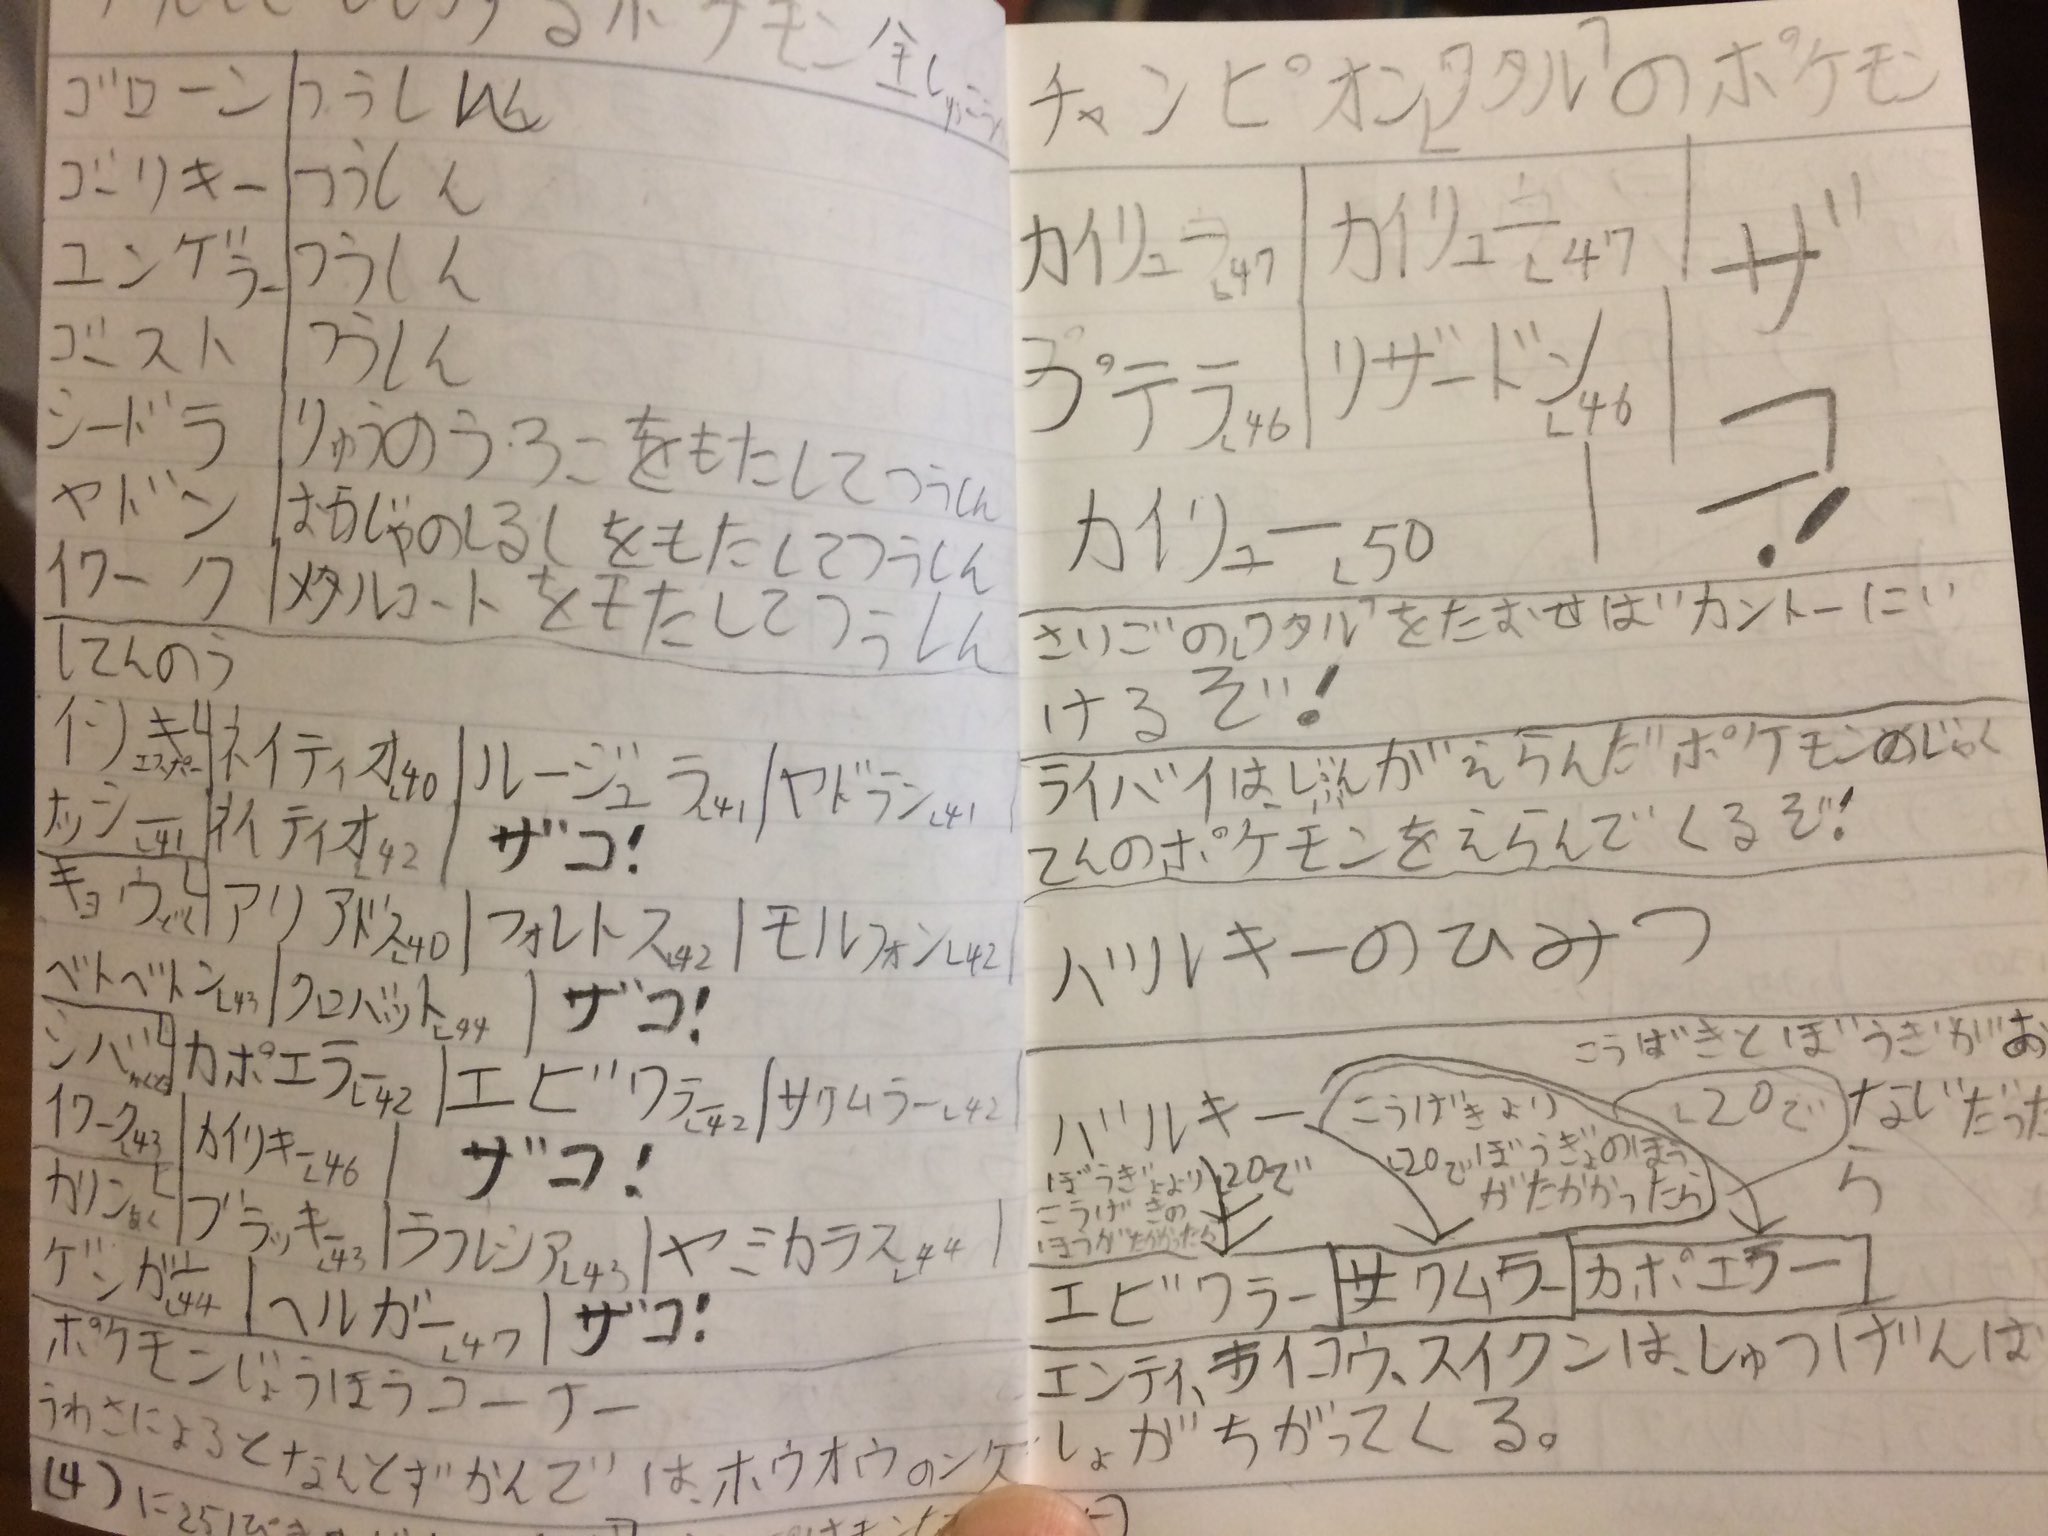 するポケモン全しょうかい
ゴローン つうしん
ゴーリキー つうしん
ユンゲラー つうしん
ゴースト つうしん
シードラ りゅうのうろこをもたしてつうしん
ヤドン おうじゃのしるしをもたしてつうしん
イワーク メタルコートをモたしてつうしん
してんのう
イツキ エスパー ネイティオL40 ルージュラL41 ヤドランL41
ナッシーL41 ネイティオL42 ザコ!
キョウ どく アリアドスL40 フォレトスL42 モルフォンL42
ベトベトンL43 クロバットL44 ザコ!
シバ かくとう カポエラーL42 エビワラーL42 サワムラーL42
イワークL43 カイリキーL46 ザコ!
カリン あく ブラッキーL43 ラフレシアL43 ヤミカラスL44
ゲンガーL44 ヘルガーL47 ザコ!
ポケモンじょうほうコーナー
うわさによるとなんとずかんでは、ホウオウのンケ
(4)に251ひき
チャンピオン「ワタル」のポケモン
カイリューL47 カイリューL47
プテラL46 リザードンL46
カイリューL50
ザコ!
さいごの「ワタル」をたおせばカントーにい
けるぞ!
ライバイは、じぶんがえらんだポケモンのじゃく
てんのポケモンをえらんでくるぞ!
バルキーのひみつ
こうばきとぼうぎがお
なじだった
ら
L20で
バルキー
こうげきより
L20でぼうぎょのほう
がたかかったら
ぼうぎょより
こうげきの
ほうがたかかったら
L20で
エビワラー サワムラー カポエラー
エンテイ、ライコウ、スイクンは、しゅつげんば
しょがちがってくる。